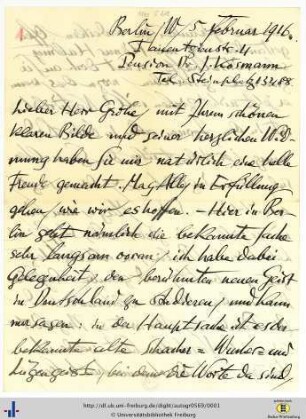 Berlin /W/ 5. Februar 1916.
Tauentzienstr. 11
Pension Dr. J. Kosmann
Tel. Steinplatz 13488
Lieber Herr Grohe, mit Ihrem schönen
klaren Bilde und seiner herzlichen Wid-
mung haben Sie mir natürlich eine helle
Freude gemacht. Mag Alles in Erfüllung
gehen, wie wir es hoffen. – Hier in Ber-
lin geht nämlich die bekannte Sache
sehr langsam voran, ich habe dabei
Gelegenheit, den berühmten neuen Geist
in Deutschland zu sondieren, und kann
nur sagen: in der Hauptsache ist es der
bekannte alte Schacher- Wucher- und
Lügengeist, bei dem die Worte da sind,
http://dl.ub.uni-freiburg.de/diglit/autogr0569/0001
© Universitätsbibliothek Freiburg